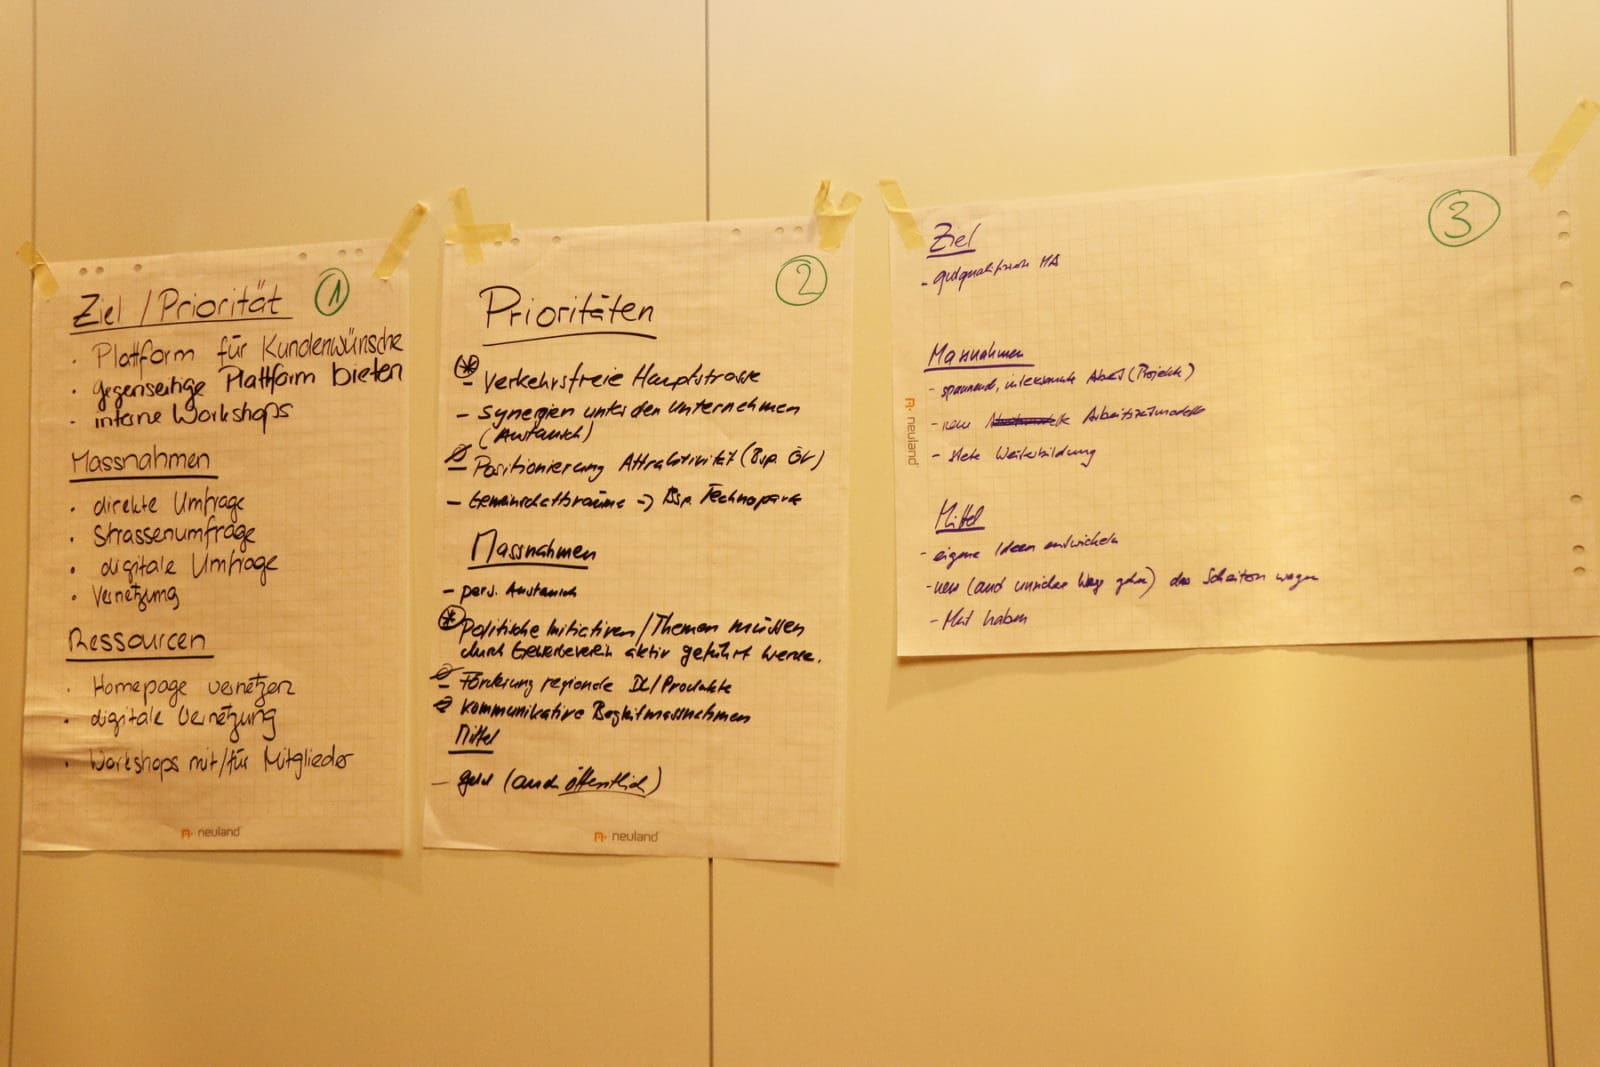 1
Ziel / Priorität
· Plattform für Kundenwünsche
· gegenseitige Plattform bieten
· interne Workshops
Massnahmen
· direkte Umfrage
· Strassenumfrage
· digitale Umfrage
· Vernetzung
Ressourcen
· Homepage vernetzen
· digitale Vernetzung
· Workshops mit/für Mitglieder
neuland
2
Prioritäten
* – Verkehrsfreie Hauptstrasse
– Synergien unter den Unternehmen
(Austausch)
– Positionierung Attraktivität (Bsp. ÖV)
– Gemeinschaftsräume -> Bsp. Technopark
Massnahmen
– pers. Austausch
* Politische Initiativen / Themen müssen
durch Gewerbeverein aktiv geführt werden.
– Förderung regionale DL/Produkte
Kommunikative Begleitmassnahmen
Mittel
– Geld (auch öffentlich)
neuland
3
Ziel
- gutqualifizierte MA
Massnahmen
- spannende, interessante Arbeit (Projekte)
- neue Arbeitszeitmodelle
- stete Weiterbildung
Mittel
- eigene Ideen entwickeln
- neue (auch unsichere Wege gehen) das Scheitern wagen
- Mut haben
neuland